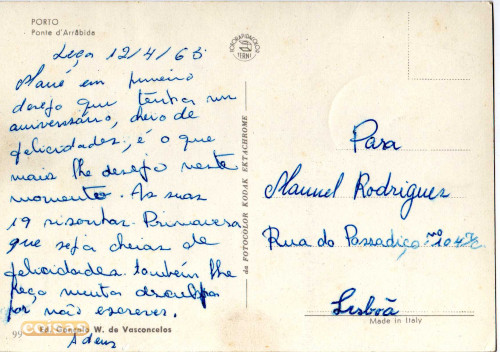 PORTO
Ponte d'Arrábida
Leça 12/4/65
Mané em primeiro
desejo que tenhas um
aniversário, cheio de
felicidades, é o que
mais lhe desejo neste
momento. As suas
19 risonhas Primavera
que seja cheias de
felicidades. também lhe
peço muita desculpa
por não escreves.
Adeus
Ed. Gonçalo W. de Vasconcelos
99
coisas
FOTORAPIDACOLOR
TERNI
da FOTOCOLOR KODAK EKTACHROME
Para
Manuel Rodrigues
Rua do Passadiço nº 104
Lisbôa
Made in Italy